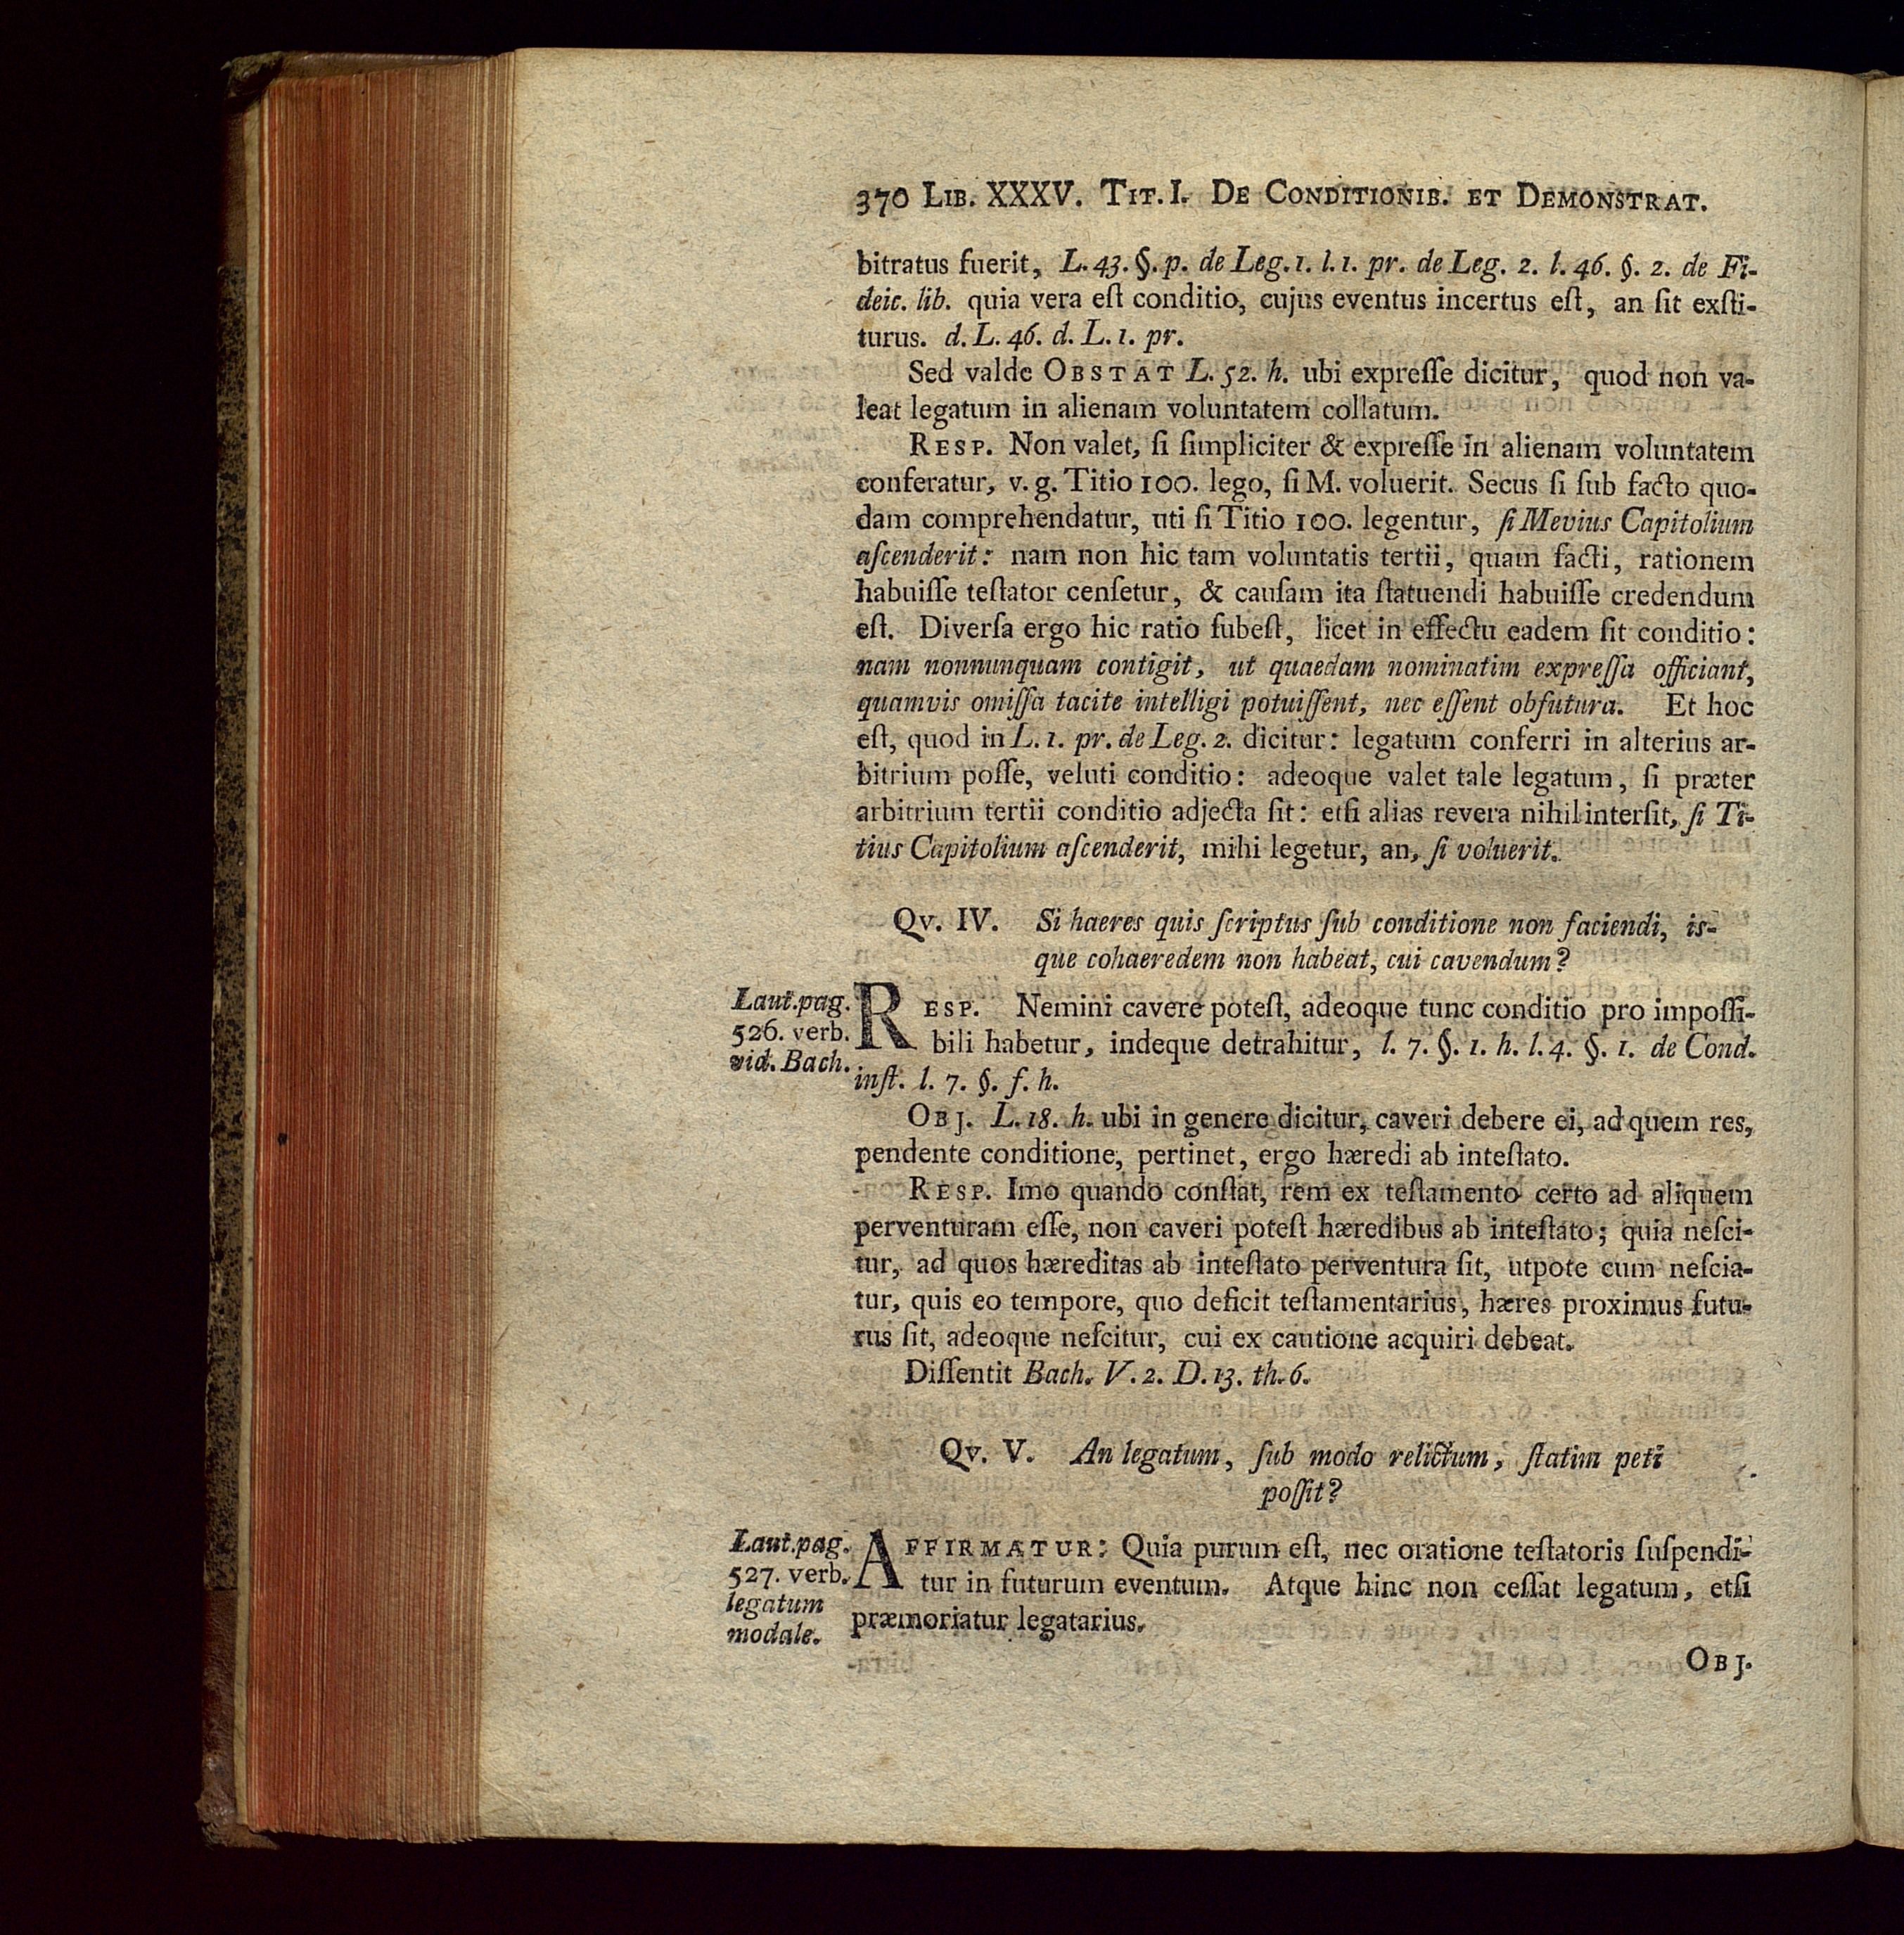 370 LIB. XXXV. TIT. I. DE CONDITIONIB. ET DEMONSTRAT.
bitratus fuerit, L. 43. §. p. de Leg. 1. l. 1. pr. de Leg. 2. l. 46. §. 2. de Fi-
deic. lib. quia vera eſt conditio, cujus eventus incertus eſt, an ſit exſti-
turus. d. L. 46. d. L. 1. pr.
Sed valde OBSTAT L. 52. h. ubi expreſſe dicitur, quod non va-
leat legatum in alienam voluntatem collatum.
RESP. Non valet, ſi ſimpliciter & expreſſe in alienam voluntatem
conferatur, v. g. Titio 100. lego, ſi M. voluerit. Secus ſi ſub facto quo-
dam comprehendatur, uti ſi Titio 100. legentur, ſi Mevius Capitolium
aſcenderit: nam non hic tam voluntatis tertii, quam facti, rationem
habuiſſe teſtator cenſetur, & cauſam ita ſtatuendi habuiſſe credendum
eſt. Diverſa ergo hic ratio ſubeſt, licet in effectu eadem ſit conditio:
nam nonnunquam contigit, ut quaedam nominatim expreſſa officiant,
quamvis omiſſa tacite intelligi potuiſſent, nec eſſent obfutura. Et hoc
eſt, quod in L. 1. pr. de Leg. 2. dicitur: legatum conferri in alterius ar-
bitrium poſſe, veluti conditio: adeoque valet tale legatum, ſi præter
arbitrium tertii conditio adjecta ſit: etſi alias revera nihil interſit, ſi Ti-
tius Capitolium aſcenderit, mihi legetur, an, ſi voluerit.
Qv. IV. Si haeres quis ſcriptus ſub conditione non faciendi, is-
que cohaeredem non habeat, cui cavendum?
Laut. pag.
526. verb.
vid. Bach.
RESP. Nemini cavere poteſt, adeoque tunc conditio pro impoſſi-
bili habetur, indeque detrahitur, l. 7. §. 1. h. l. 4. §. 1. de Cond.
inſt. l. 7. §. f. h.
OBJ. L. 18. h. ubi in genere dicitur, caveri debere ei, ad quem res,
pendente conditione, pertinet, ergo hæredi ab inteſtato.
RESP. Imo quando conſtat, rem ex teſtamento certo ad aliquem
perventuram eſſe, non caveri poteſt hæredibus ab inteſtato; quia neſci-
tur, ad quos hæreditas ab inteſtato perventura ſit, utpote cum neſcia-
tur, quis eo tempore, quo deficit teſtamentarius, hæres proximus futu-
rus ſit, adeoque neſcitur, cui ex cautione acquiri debeat.
Diſſentit Bach. V. 2. D. 13. th. 6.
Qv. V. An legatum, ſub modo relictum, ſtatim peti
poſſit?
Laut. pag.
527. verb.
legatum
modale.
AFFIRMATUR: Quia purum eſt, nec oratione teſtatoris ſuſpendi-
tur in futurum eventum. Atque hinc non ceſſat legatum, etſi
præmoriatur legatarius.
OBJ.